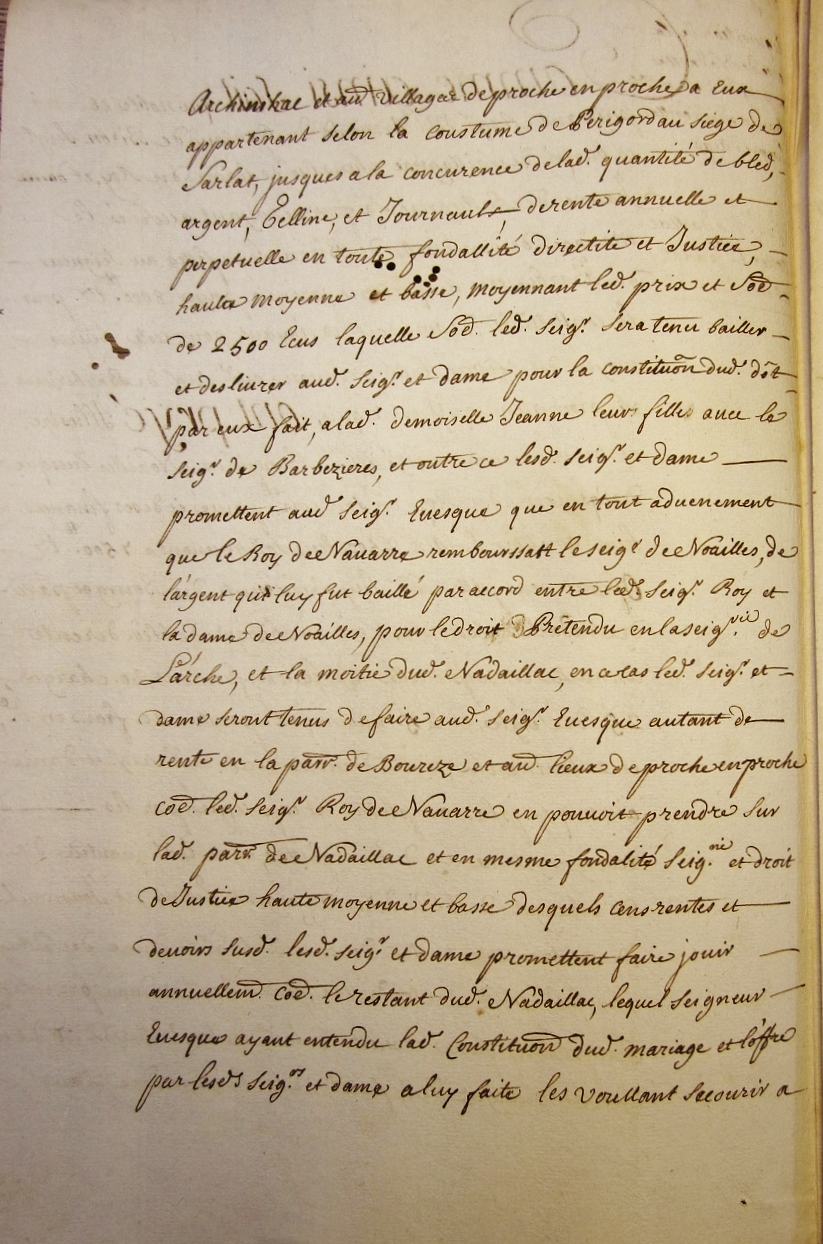 Archinhac et aud. villages de proche en proche a Eux
appartenant selon la coustume de Perigord au siege de
Sarlat, jusques a la concurence de lad. quantité de bled,
argent, Gelline, et Journault, de rente annuelle et
perpetuelle en toute fondallité directite et Justice,
haulte moyenne et basse, moyennant led. prix et Soe.
de 2500 Ecus laquelle Soe. led. Seigr. sera tenu bailler
et deslivrer aud. Seigr. et dame pour la constituõn dud. dôt
par eux fait, a lad. demoiselle Jeanne leurs filles avec le
Seigr. de Barbezieres, et outre ce lesd. Seigr. et dame
promettent aud. Seigr. Evesque que en tout aduenement
que le Roy de Navarre rembourssatt le seigr. de Noailles, de
l'argent qui luy fut baillé par accord entre led. Seigr. Roy et
la dame de Noailles, pour le droit Prétendu en la seig.rie de
L'arche, et la moitié dud. Nadaillac, en ce cas led. Seigr. et
dame seront tenus de faire aud. Seigr. Evesque autant de
rente en la parr. de Boureze et aud. lieux de proche en proche
coe. led. Seigr. Roy de Navarre en pouvoit prendre sur
lad. parr. de Nadaillac et en mesme fondalité Seig.rie et droit
de Justice haute moyenne et basse desquels cens rentes et
devoirs susd. lesd. Seigr. et dame promettent faire jouir
annuellemt. coe. le restant dud. Nadaillac, lequel Seigneur
Evesque ayant entendu lad. Constituõn dud. mariage et l'offre
par lesds. Seigrs. et dame a luy faite les voullant secourir a